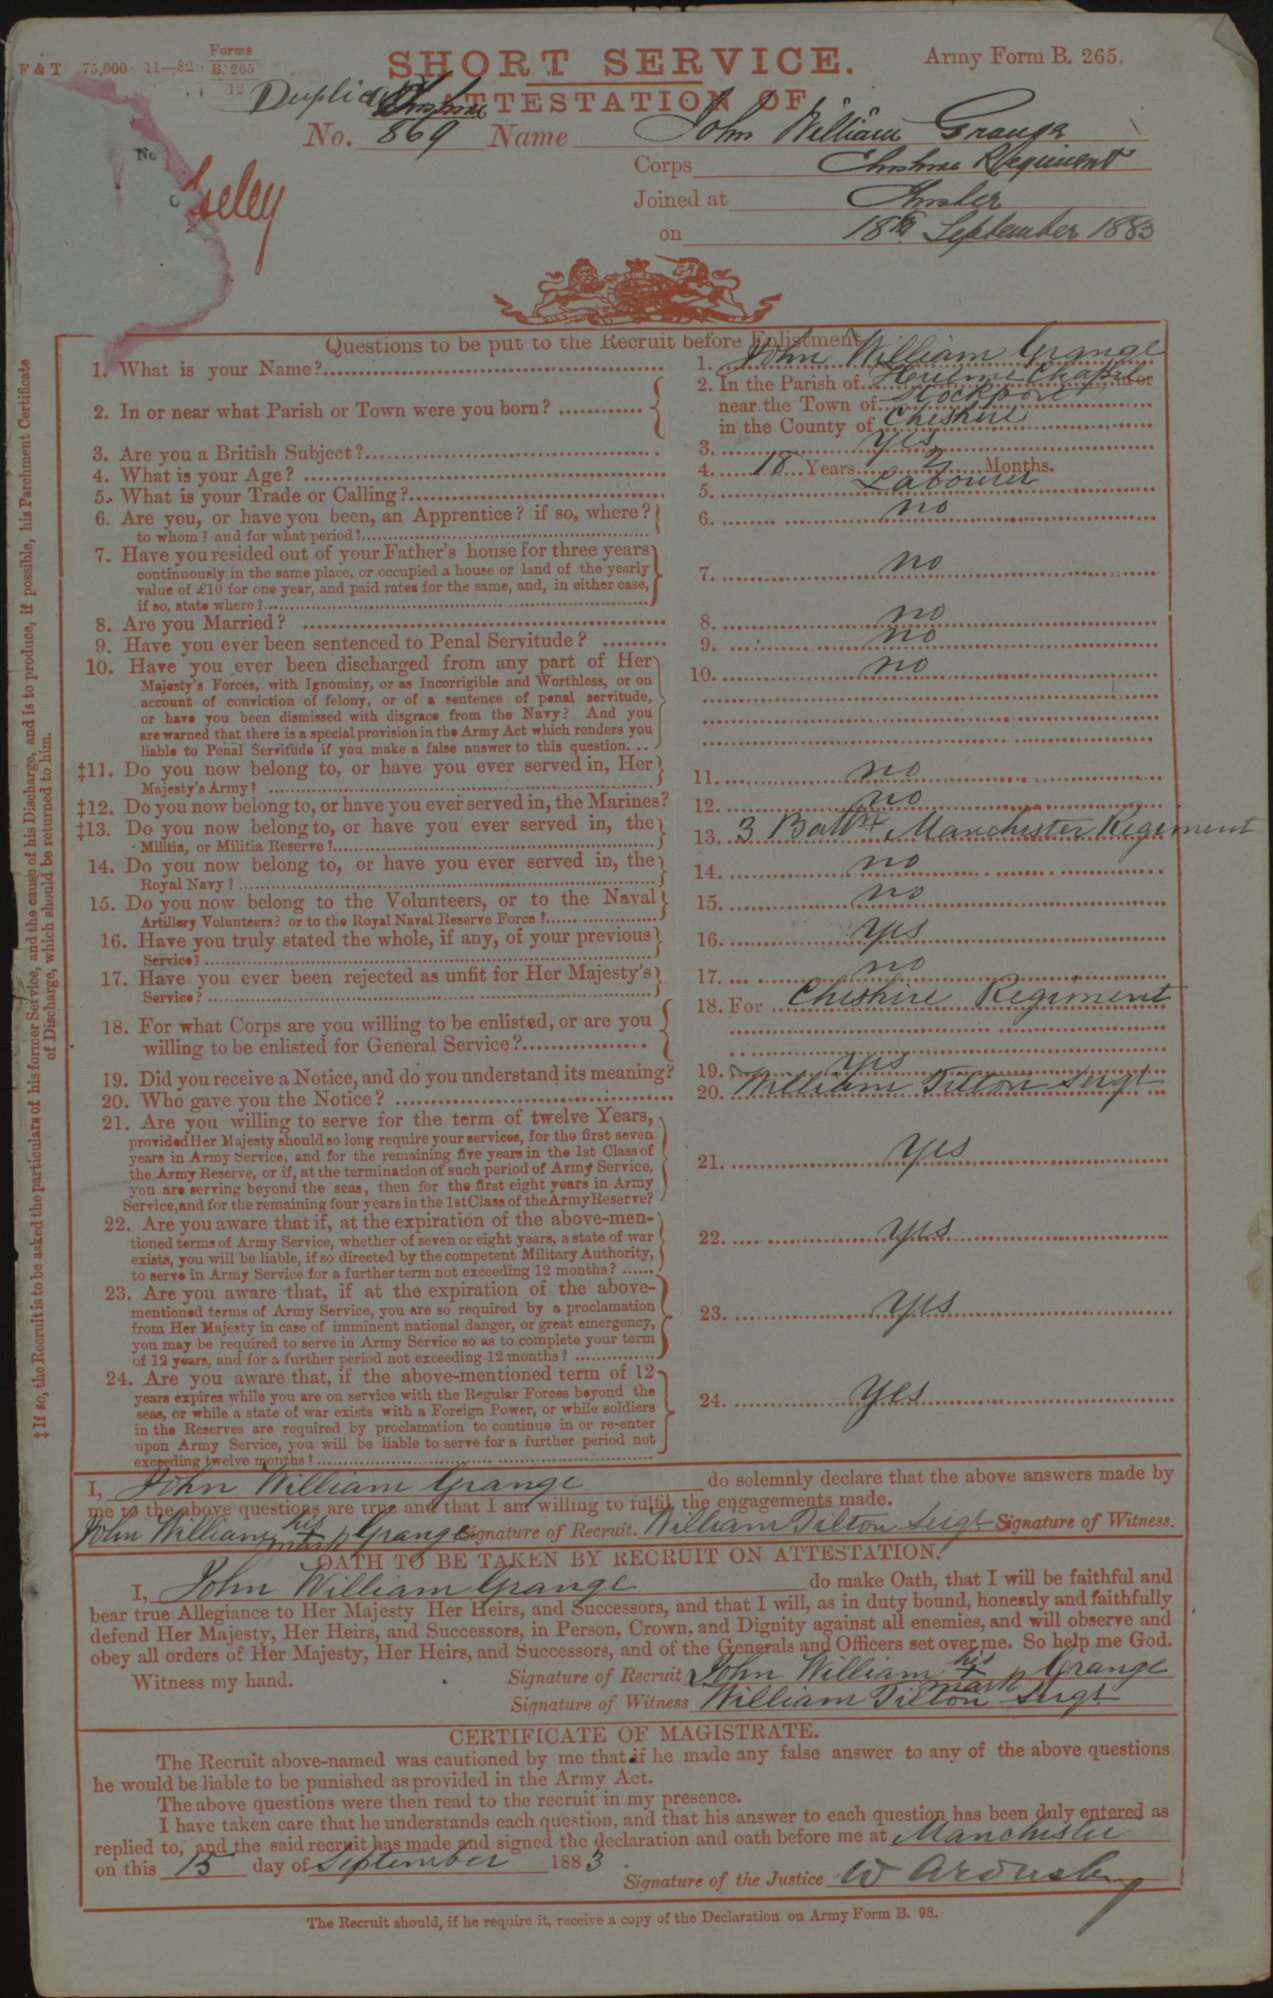 F & T 75,000 11—82 Forms B. 265 12
SHORT SERVICE. Army Form B. 265.
ATTESTATION OF
No. 869 Name John William Grange
No
Corps Cheshire Regiment
Joined at Chester
on 18th September 1883
Questions to be put to the Recruit before Enlistment.
1. What is your Name? 1. John William Grange
2. In or near what Parish or Town were you born? 2. In the Parish of Chapel in or
near the Town of Stockport
in the County of Cheshire
3. Are you a British Subject? 3. Yes
4. What is your Age? 4. 18 Years 2 Months.
5. What is your Trade or Calling? 5. Labourer
6. Are you, or have you been, an Apprentice? if so, where? 6. no
to whom? and for what period?
7. Have you resided out of your Father's house for three years 7. no
continuously in the same place, or occupied a house or land of the yearly
value of £10 for one year, and paid rates for the same, and, in either case,
if so, state where?
8. Are you Married? 8. no
9. Have you ever been sentenced to Penal Servitude? 9. no
10. Have you ever been discharged from any part of Her 10. no
Majesty's Forces, with Ignominy, or as Incorrigible and Worthless, or on
account of conviction of felony, or of a sentence of penal servitude,
or have you been dismissed with disgrace from the Navy? And you
are warned that there is a special provision in the Army Act which renders you
liable to Penal Servitude if you make a false answer to this question.
‡11. Do you now belong to, or have you ever served in, Her 11. no
Majesty's Army?
‡12. Do you now belong to, or have you ever served in, the Marines? 12. no
‡13. Do you now belong to, or have you ever served in, the 13. 3 Battn Manchester Regiment
Militia, or Militia Reserve?
14. Do you now belong to, or have you ever served in, the 14. no
Royal Navy?
15. Do you now belong to the Volunteers, or to the Naval 15. no
Artillery Volunteers? or to the Royal Naval Reserve Force?
16. Have you truly stated the whole, if any, of your previous 16. Yes
Service?
17. Have you ever been rejected as unfit for Her Majesty's 17. no
Service?
18. For what Corps are you willing to be enlisted, or are you 18. For Cheshire Regiment
willing to be enlisted for General Service?
19. Did you receive a Notice, and do you understand its meaning? 19. Yes
20. Who gave you the Notice? 20. William Tilton Sergt
21. Are you willing to serve for the term of twelve Years, 21. Yes
provided Her Majesty should so long require your services, for the first seven
years in Army Service, and for the remaining five years in the 1st Class of
the Army Reserve, or if, at the termination of such period of Army Service,
you are serving beyond the seas, then for the first eight years in Army
Service, and for the remaining four years in the 1st Class of the Army Reserve?
22. Are you aware that if, at the expiration of the above-men- 22. Yes
tioned terms of Army Service, whether of seven or eight years, a state of war
exists, you will be liable, if so directed by the competent Military Authority,
to serve in Army Service for a further term not exceeding 12 months?
23. Are you aware that, if at the expiration of the above- 23. Yes
mentioned terms of Army Service, you are so required by a proclamation
from Her Majesty in case of imminent national danger, or great emergency,
you may be required to serve in Army Service so as to complete your term
of 12 years, and for a further period not exceeding 12 months?
24. Are you aware that, if the above-mentioned term of 12 24. Yes
years expires while you are on service with the Regular Forces beyond the
seas, or while a state of war exists with a Foreign Power, or while soldiers
in the Reserves are required by proclamation to continue in or re-enter
upon Army Service, you will be liable to serve for a further period not
exceeding twelve months?
‡ If so, the Recruit is to be asked the particulars of his former Service, and the cause of his Discharge, and is to produce, if possible, his Parchment Certificate
of Discharge, which should be returned to him.
I, John William Grange do solemnly declare that the above answers made by
me to the above questions are true and that I am willing to fulfil the engagements made.
John William his + mark Grange Signature of Recruit. William Tilton Sergt Signature of Witness.
OATH TO BE TAKEN BY RECRUIT ON ATTESTATION.
I, John William Grange do make Oath, that I will be faithful and
bear true Allegiance to Her Majesty Her Heirs, and Successors, and that I will, as in duty bound, honestly and faithfully
defend Her Majesty, Her Heirs, and Successors, in Person, Crown, and Dignity against all enemies, and will observe and
obey all orders of Her Majesty, Her Heirs, and Successors, and of the Generals and Officers set over me. So help me God.
Witness my hand. Signature of Recruit John William his + mark Grange
Signature of Witness William Tilton Sergt
CERTIFICATE OF MAGISTRATE.
The Recruit above-named was cautioned by me that if he made any false answer to any of the above questions
he would be liable to be punished as provided in the Army Act.
The above questions were then read to the recruit in my presence.
I have taken care that he understands each question, and that his answer to each question has been duly entered as
replied to, and the said recruit has made and signed the declaration and oath before me at Manchester
on this 15 day of September 1883.
Signature of the Justice W
The Recruit should, if he require it, receive a copy of the Declaration on Army Form B. 98.